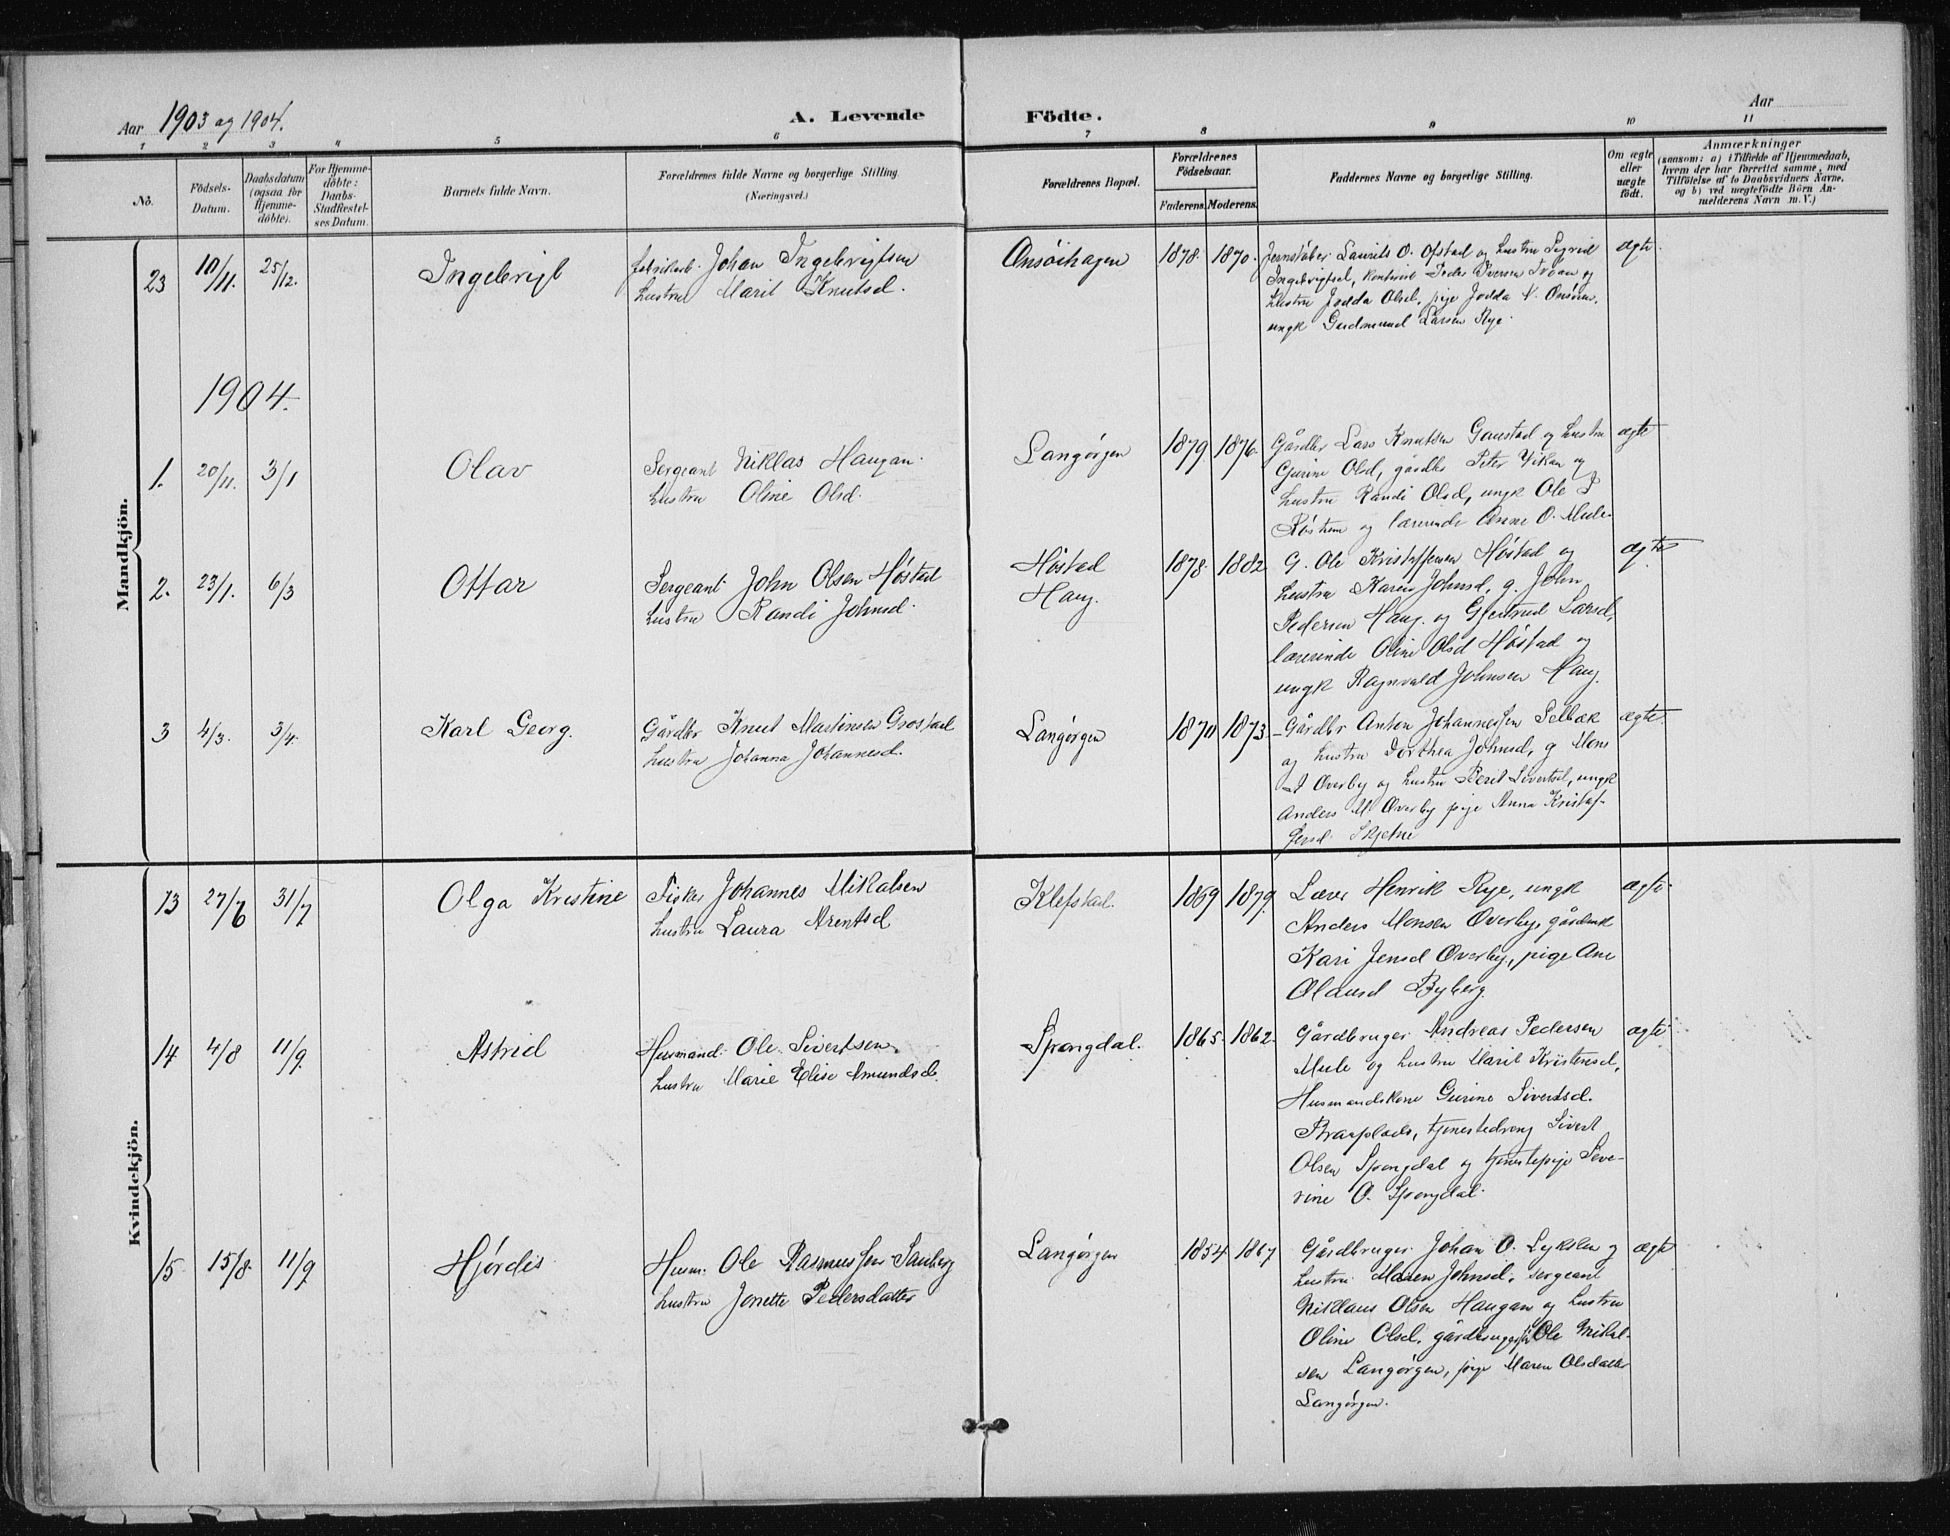 Aar 1903 og 1904. A. Levende Födte. Aar
1 2 3 4 5 6 7 8 9 10 11
No.
Födsels-Datum.
Daabsdatum (ogsaa for Hjemme-döbte).
For Hjemme-döbte: Daabs-Stadfæstel-ses Datum.
Barnets fulde Navn.
Forældrenes fulde Navne og borgerlige Stilling (Næringsvei.)
Forældrenes Bopæl.
Forældrenes Födselsaar.
Faderens. Moderens.
Faddernes Navne og borgerlige Stilling.
Om ægte eller uægte födt.
Anmærkninger
(saasom: a) i Tilfælde af Hjemmedaab,
hvem der har forrettet samme, med
Tilföielse af to Daabsvidners Navne,
og b) ved uægtefödte Börn An-
melderens Navn m. V.)
Mandkjön.
23 10/11. 25/12. Ingebrigt
Johan Ingebrigtsen
hustru Marit Knutsd.
Onsöihagen 1878. 1870.
Laurits O. Ofstad og hustru Sigrid
Ingebrigtsd, Peder Iversen
hustru Jodda Olsd. pige Jodda
ungk Gudmund Larsen Rye.
ægte.
1904.
1. 20/11. 3/1 Olav
Sergeant Niklas Haugan.
hustru Oline Olsd.
Langørgen 1879 1876.
Gårdbr Lars Knutsen Gaustad og hustru
Gurine Olsd, gårdbr Peter Vikan og
hustru Randi Olsd, ungk Ole
og lærerinde Anne O. Mule.
ægte
2. 23/1. 6/3 Ottar
Sergeant John Olsen Høstad
hustru Randi Johnsd.
Høstad
Haug.
1878 1882
G. Ole Kristoffersen Høstad og
hustru Karen Johnsd, g. John
Pedersen Haug. og Gjertrud Larsd,
lærerinde Oline Olsd Høstad og
ungk Ragnvald Johnsen Haug.
ægte
3 4/3. 3/4. Karl Georg.
Gårdbr Knut Martinsen Grostad
hustru Johanna Johannesd.
Langørgen 1870 1873
Gårdbr Anton Johannessen Selbæk
og hustru Dorthea Johnsd, g Mons
Overby og hustru Berit Sivertsd, ungk
Anders M. Overby pige Anna Kristof-
fersd Skjetne
ægte.
Kvindekjön.
13 27/6 31/7 Olga Kristine
Fisker Johannes Mikalsen
hustru Laura Arentsd
Klefstad. 1869 1879.
Lærer Henrik Rye, ungk
Anders Monsen Overby, gårdmk
Kari Jensd Overby, pige Ane
Olausd Byberg.
ægte.
14 4/8 11/9. Astrid
Husmand. Ole Sivertsen.
hustru Marie Elise Amundsd.
Spongdal. 1865. 1862.
Gårdbruger Andreas Pedersen
Mule og hustru Marit Kristensd,
Husmandskone Gurine Sivertsd.
Braaplads, tjenestedreng Sivert
Olsen Spongdal og tjenestepige Seve-
rine O. Spongdal.
ægte.
15 15/8. 11/9 Hjørdis
Husm. Ole Rasmussen Sauberg
hustru Jonette Pedersdatter
Langørgen 1854 1867
Gårdbruger Johan O. Lykslen og
hustru Maren Johnsd, sergeant
Niklaus Olsen Haugan og hustru
Oline Olsd, gårdbruger Ole Mikal-
sen Langørgen, pige Maren Olsdatter
Langørgen.
ægte